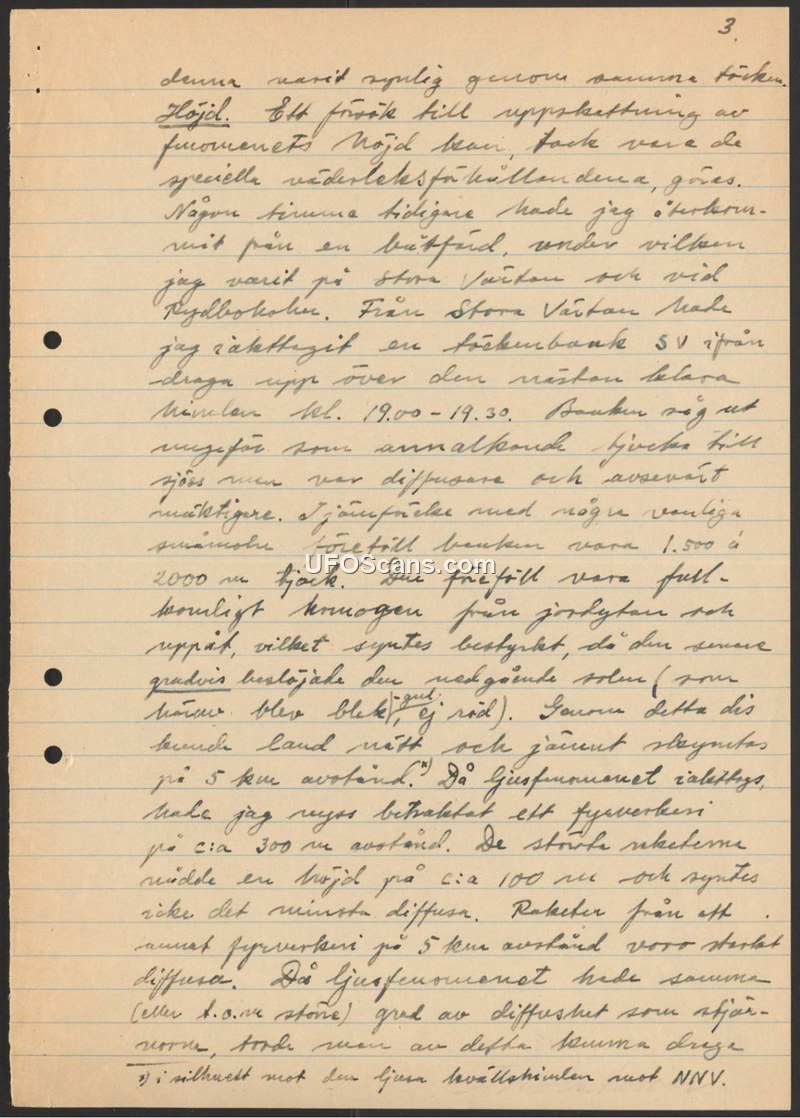 3.
denna varit synlig genom samma töcken.
Höjd. Ett försök till uppskattning av
fenomenets höjd kan, tack vare de
speciella väderleksförhållandena, göras.
Någon timma tidigare hade jag återkom-
mit från en båtfärd, under vilken
jag varit på Stora Värtan och vid
Rydboholm. Från Stora Värtan hade
jag iakttagit en töckenbank SV ifrån
draga upp över den nästan klara
himlen kl. 19.00 - 19.30. Banken såg ut
ungefär som annalkande tjocka till
sjöss men var diffusare och avsevärt
mäktigare. I jämförelse med några vanliga
småmoln föreföll banken vara 1.500 à
2000 m tjock. Den föreföll vara full-
komligt homogen från jordytan och
uppåt, vilket syntes bestyrkt, då den senare
gradvis beslöjade den nedgående solen (som
härav blev blek-gul, ej röd). Genom detta dis
kunde land nätt och jämnt skymtas
på 5 km avstånd.*) Då ljusfenomenet iakttogs,
hade jag nyss betraktat ett fyrverkeri
på c:a 300 m avstånd. De största raketerna
nådde en höjd på c:a 100 m och syntes
icke det minsta diffusa. Raketer från ett
annat fyrverkeri på 5 km avstånd voro starkt
diffusa. Då ljusfenomenet hade samma
(eller t.o.m större) grad av diffushet som stjär-
norna, torde man av detta kunna draga
*) i silhuett mot den ljusa kvällshimlen mot NNV.
UFOScans.com